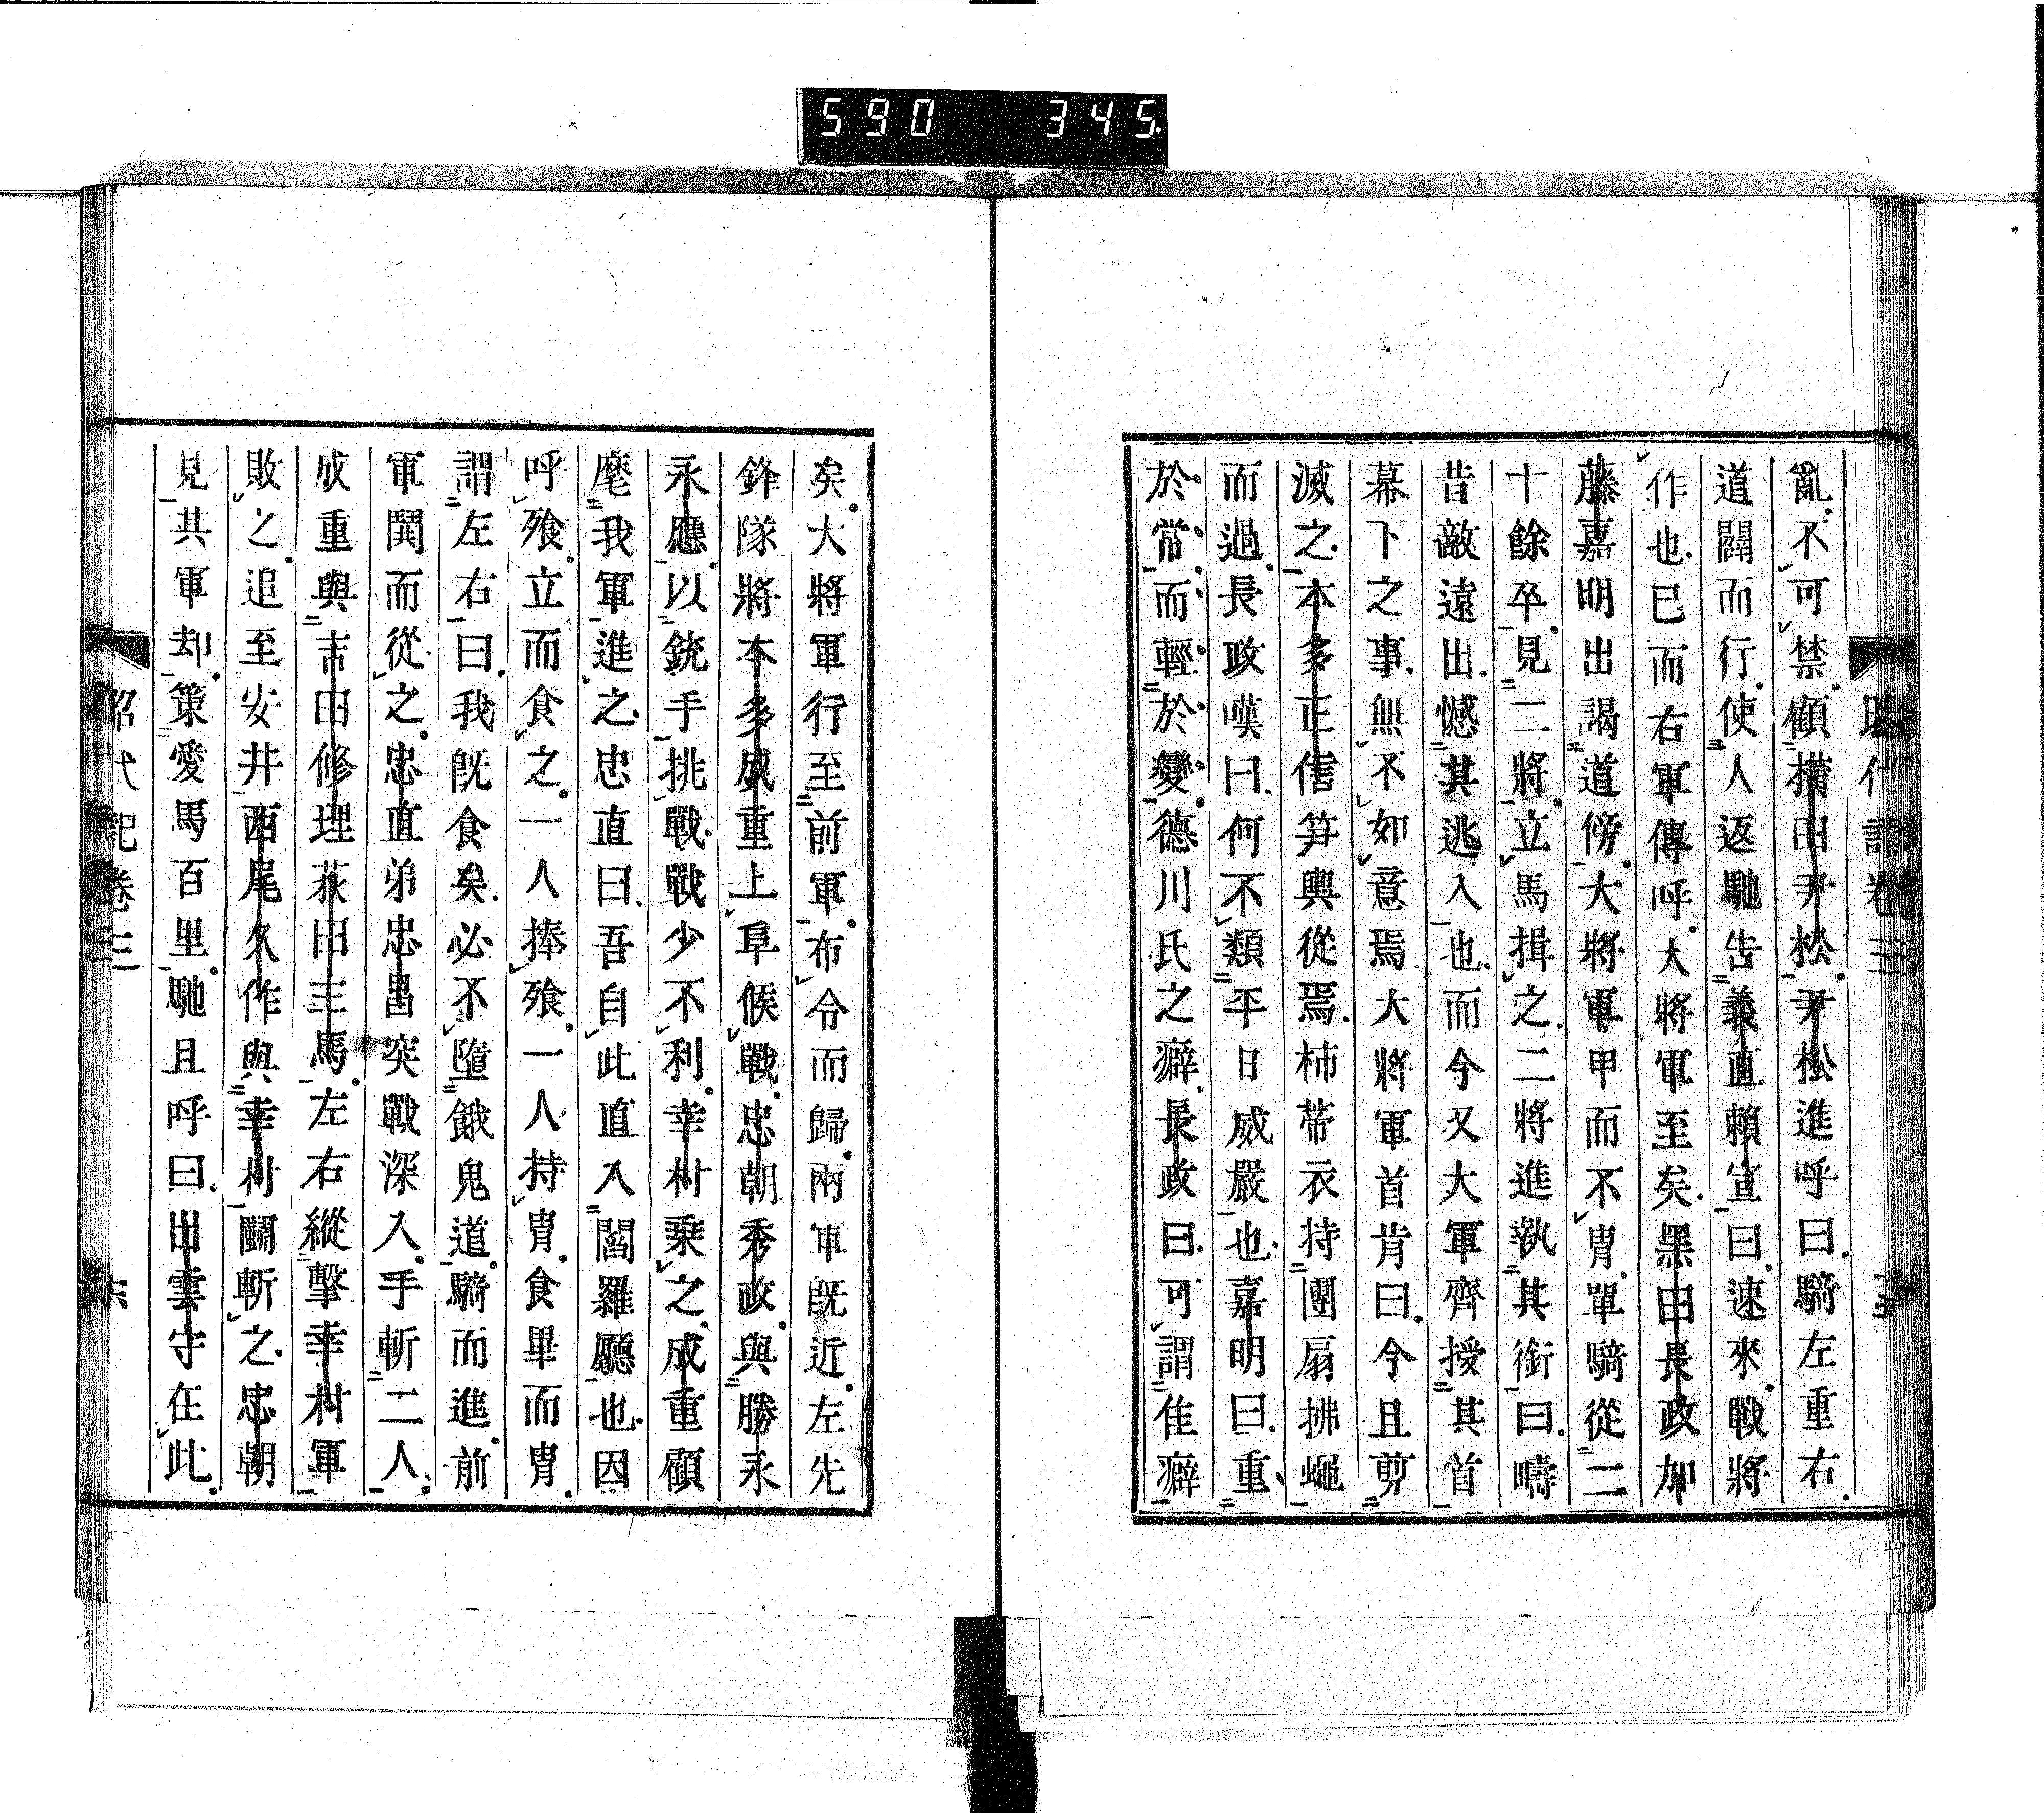 590 345
亂不可禁顧横田尹松尹松進呼曰騎左重右
道闢而行使人返馳告義直賴宣曰速來戰將
作也已而右軍傳呼大將軍至矣黑田長政加
藤嘉明出謁道傍大將軍甲而不冑單騎從二
十餘卒見二將立馬揖之二將進執其銜曰疇
昔敵遠出憾其逃入也而今又大軍齊授其首
幕下之事無不如意焉大將軍首肯曰今且剪
滅之本多正信笋輿從焉柿帶衣持團扇拂蠅
而過長政嘆曰何不類平日威嚴也嘉明曰重
於常而輕於變德川氏之癖長政曰可謂佳癖
矣大將軍行至前軍布令而歸兩軍既近左先
鋒隊將本多成重上阜候戰忠朝秀政與勝永
永應以銃手挑戰戰少不利幸村乘之成重顧
麾我軍進之忠直曰吾自此直入閻羅廳也因
呼飱立而食之一人捧飱一人持冑食畢而冑
謂左右曰我既食矣必不墮餓鬼道騎而進前
軍鬨而從之忠直弟忠昌突戰深入手斬二人
成重與吉田修理荻田主馬左右縱擊幸村軍
敗之追至安井西尾久作與幸村鬬斬之忠朝
見其軍却策愛馬百里馳且呼曰出雲守在此
昭代記卷三